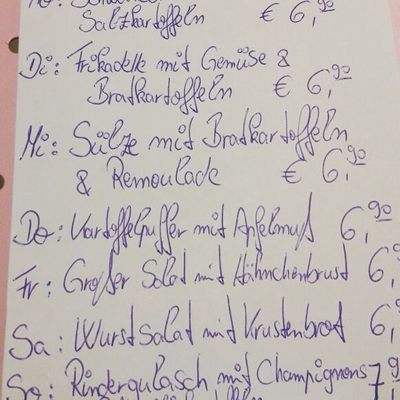 Salzkartoffeln € 6,90
Di: Frikadelle mit Gemüse &
Bratkartoffeln € 6,90
Mi: Sülze mit Bratkartoffeln
& Remoulade € 6,90
Do: Kartoffelpuffer mit Apfelmuß 6,90
Fr: Großer Salat mit Hähnchenbrust 6,
Sa: Wurstsalat mit Krustenbrot 6,
So: Rindergulasch mit Champignons 7,9